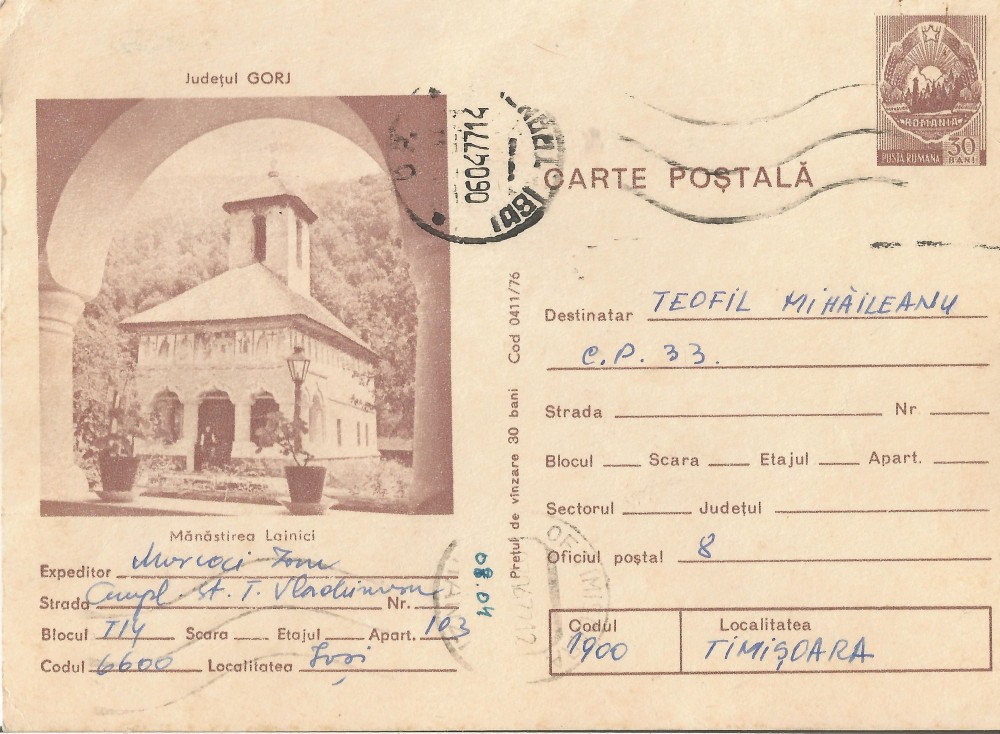 Județul GORJ
ROMANIA
POSTA ROMANA
30 BANI
06047714
CARTE POȘTALĂ
Mănăstirea Lainici
Expeditor
Strada Compl. st. T. Vladimirescu Nr.
Blocul T14 Scara Etajul Apart. 103
Codul 6600 Localitatea Iași
08.04
Prețul de vînzare 30 bani Cod 0411/76
Destinatar TEOFIL MIHĂILEANU
C.P. 33.
Strada Nr
Blocul Scara Etajul Apart.
Sectorul Județul
Oficiul poștal 8
Codul Localitatea
1900 TIMIȘOARA